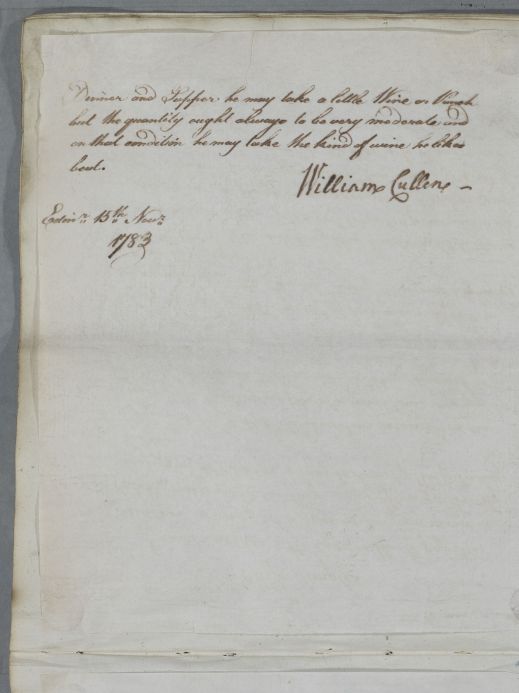 Dinner and Supper he may take a little Wine or Punch
but the quantity ought always to be very moderate, and
on that condition he may take the kind of wine he likes
best.
William Cullen
Edinr. 15th Novr.
1783